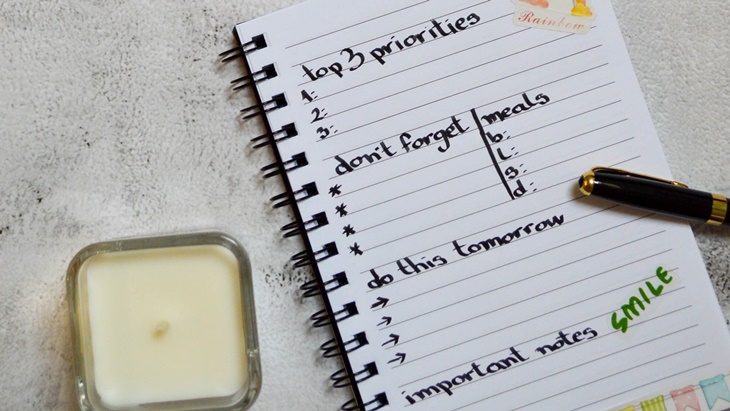 Rainbow
top 3 priorities
1:
2:
3:
don't forget
*
*
*
*
meals
b:
L:
s:
d:
do this tomorrow
→
→
→
→
important notes
SMILE